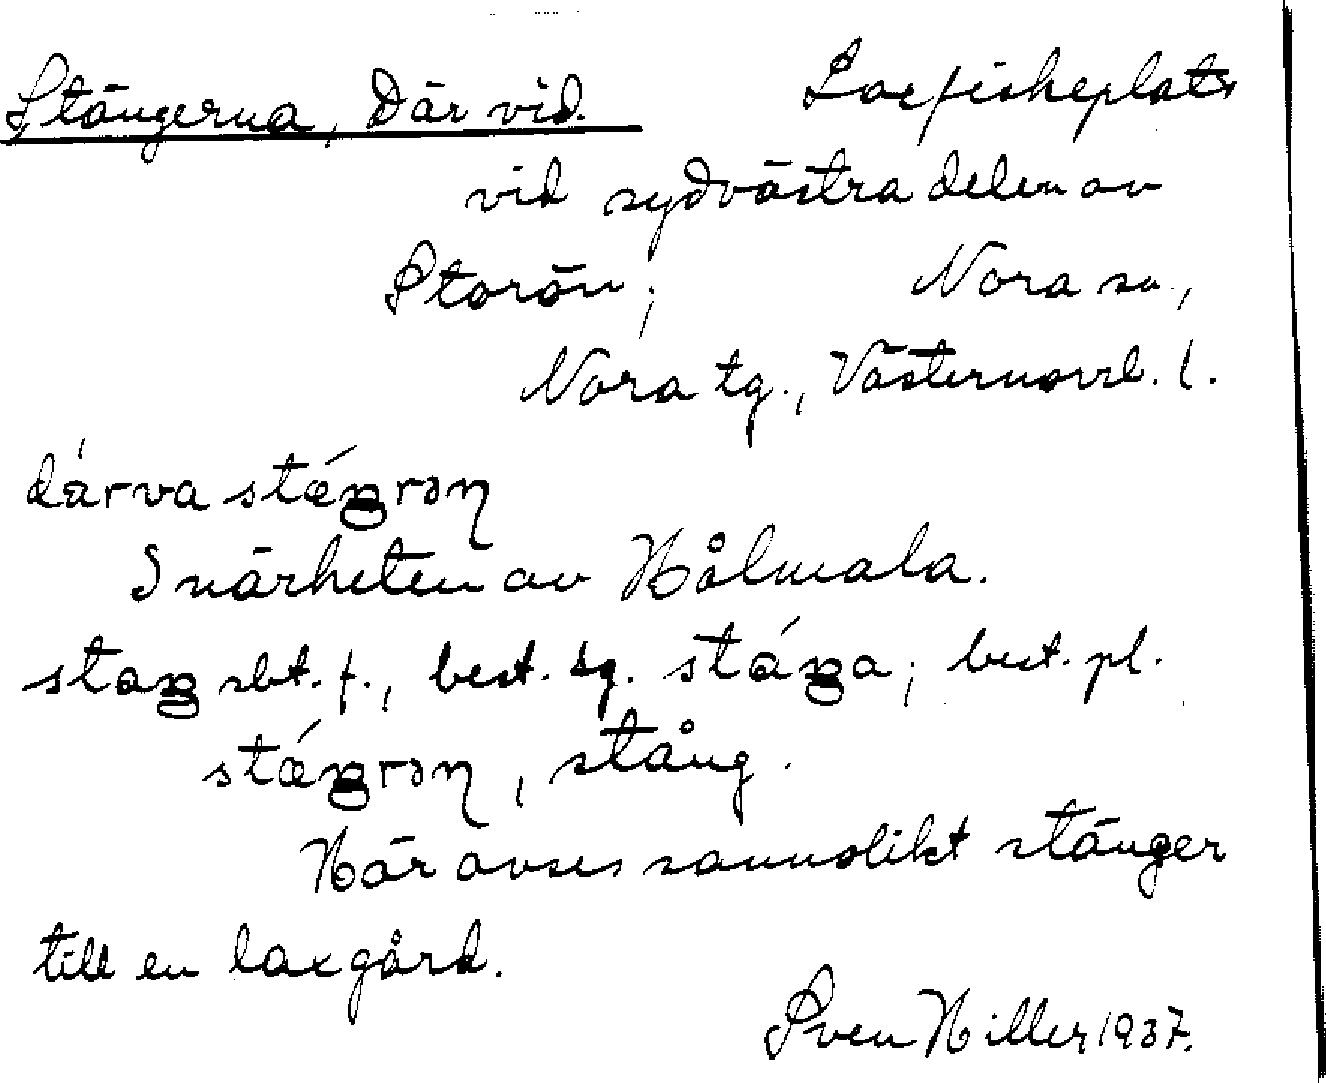 Stängerna, Där vid. Laxfiskeplats
vid sydvästra delen av
Storön; Nora sn.,
Nora tg., Västernorrl. l.
dárva stǽŋrəɳ
I närheten av Hålmala.
staŋ sbt. f., best. sg. stáŋa; best. pl.
stǽŋrəɳ, stång.
Här avses sannolikt stänger
till en laxgård.
Sven Hiller 1937.